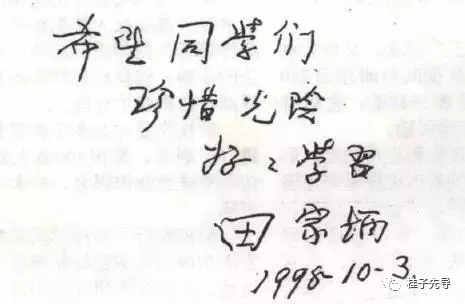 希望同学们
珍惜光阴
好〻学习
田家炳
1998-10-3.
桂子先寻